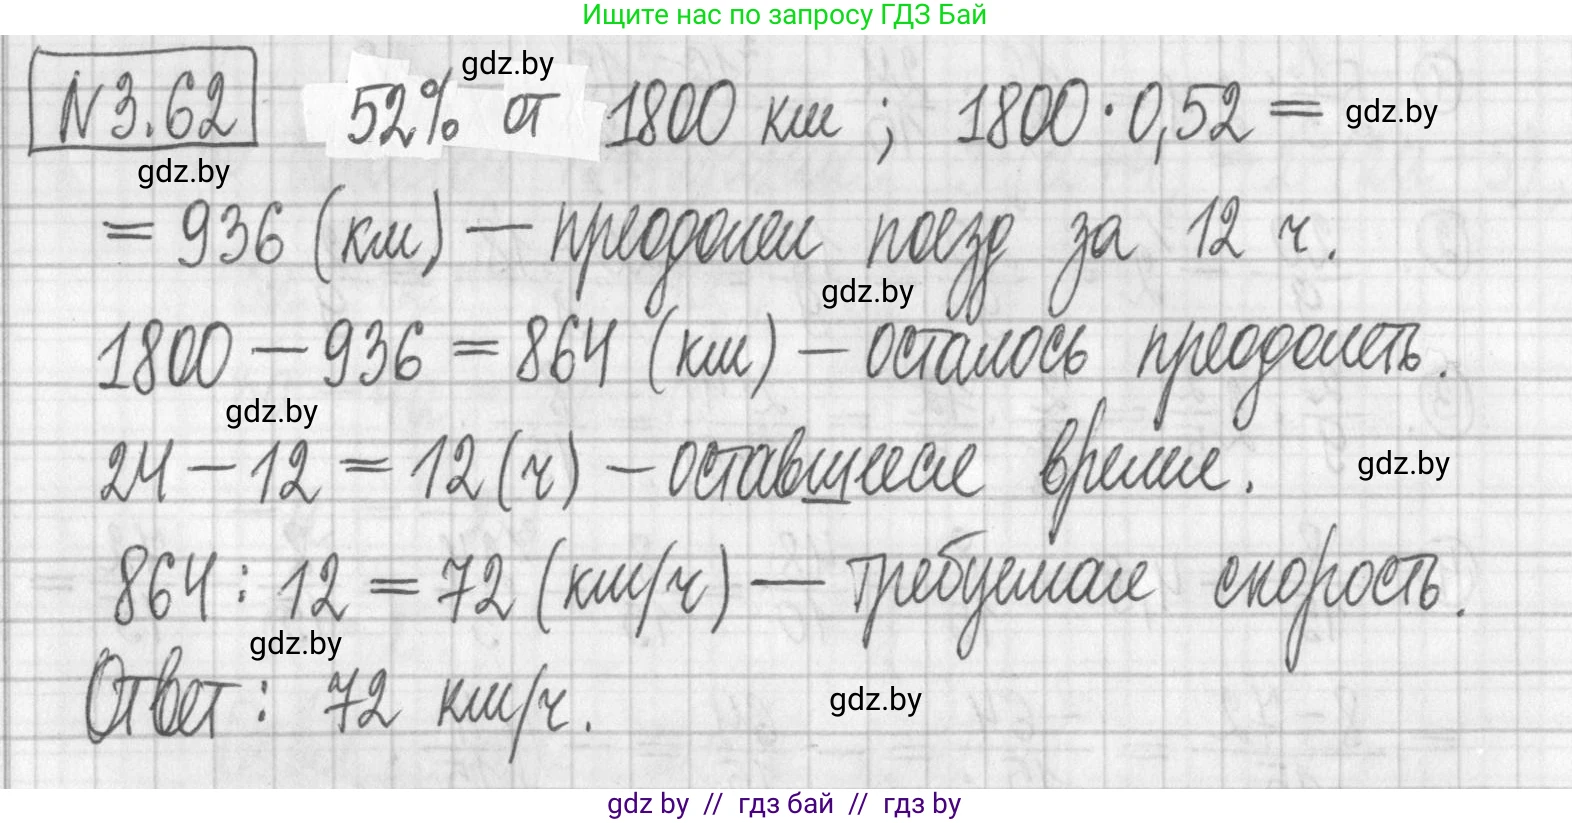 Ищите нас по запросу ГДЗ Бай
gdz.by
N3.62 52% от 1800 км ; 1800·0,52 = gdz.by
gdz.by
= 936 (км) — преодолел поезд за 12 ч.
gdz.by
1800 — 936 = 864 (км) — осталось преодолеть.
gdz.by
24 — 12 = 12 (ч) — оставшееся время. gdz.by
864 : 12 = 72 (км/ч) — требуемая скорость.
gdz.by
Ответ : 72 км/ч. gdz.by
gdz by // гдз бай // гдз by